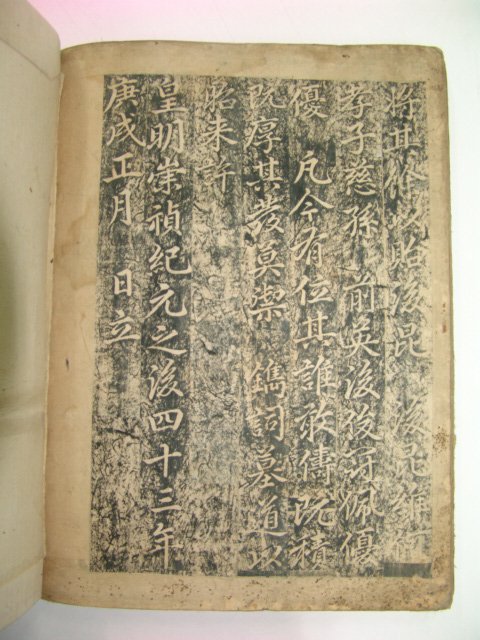 將其餘以貽後昆 後昆維何
孝子慈孫 前英後俊冠佩優
優 凡今有位其誰敢儔既積
既厚其發莫禦 鐫詞墓道以
昭來許
皇明崇禎紀元之後四十三年
庚戌正月 日立